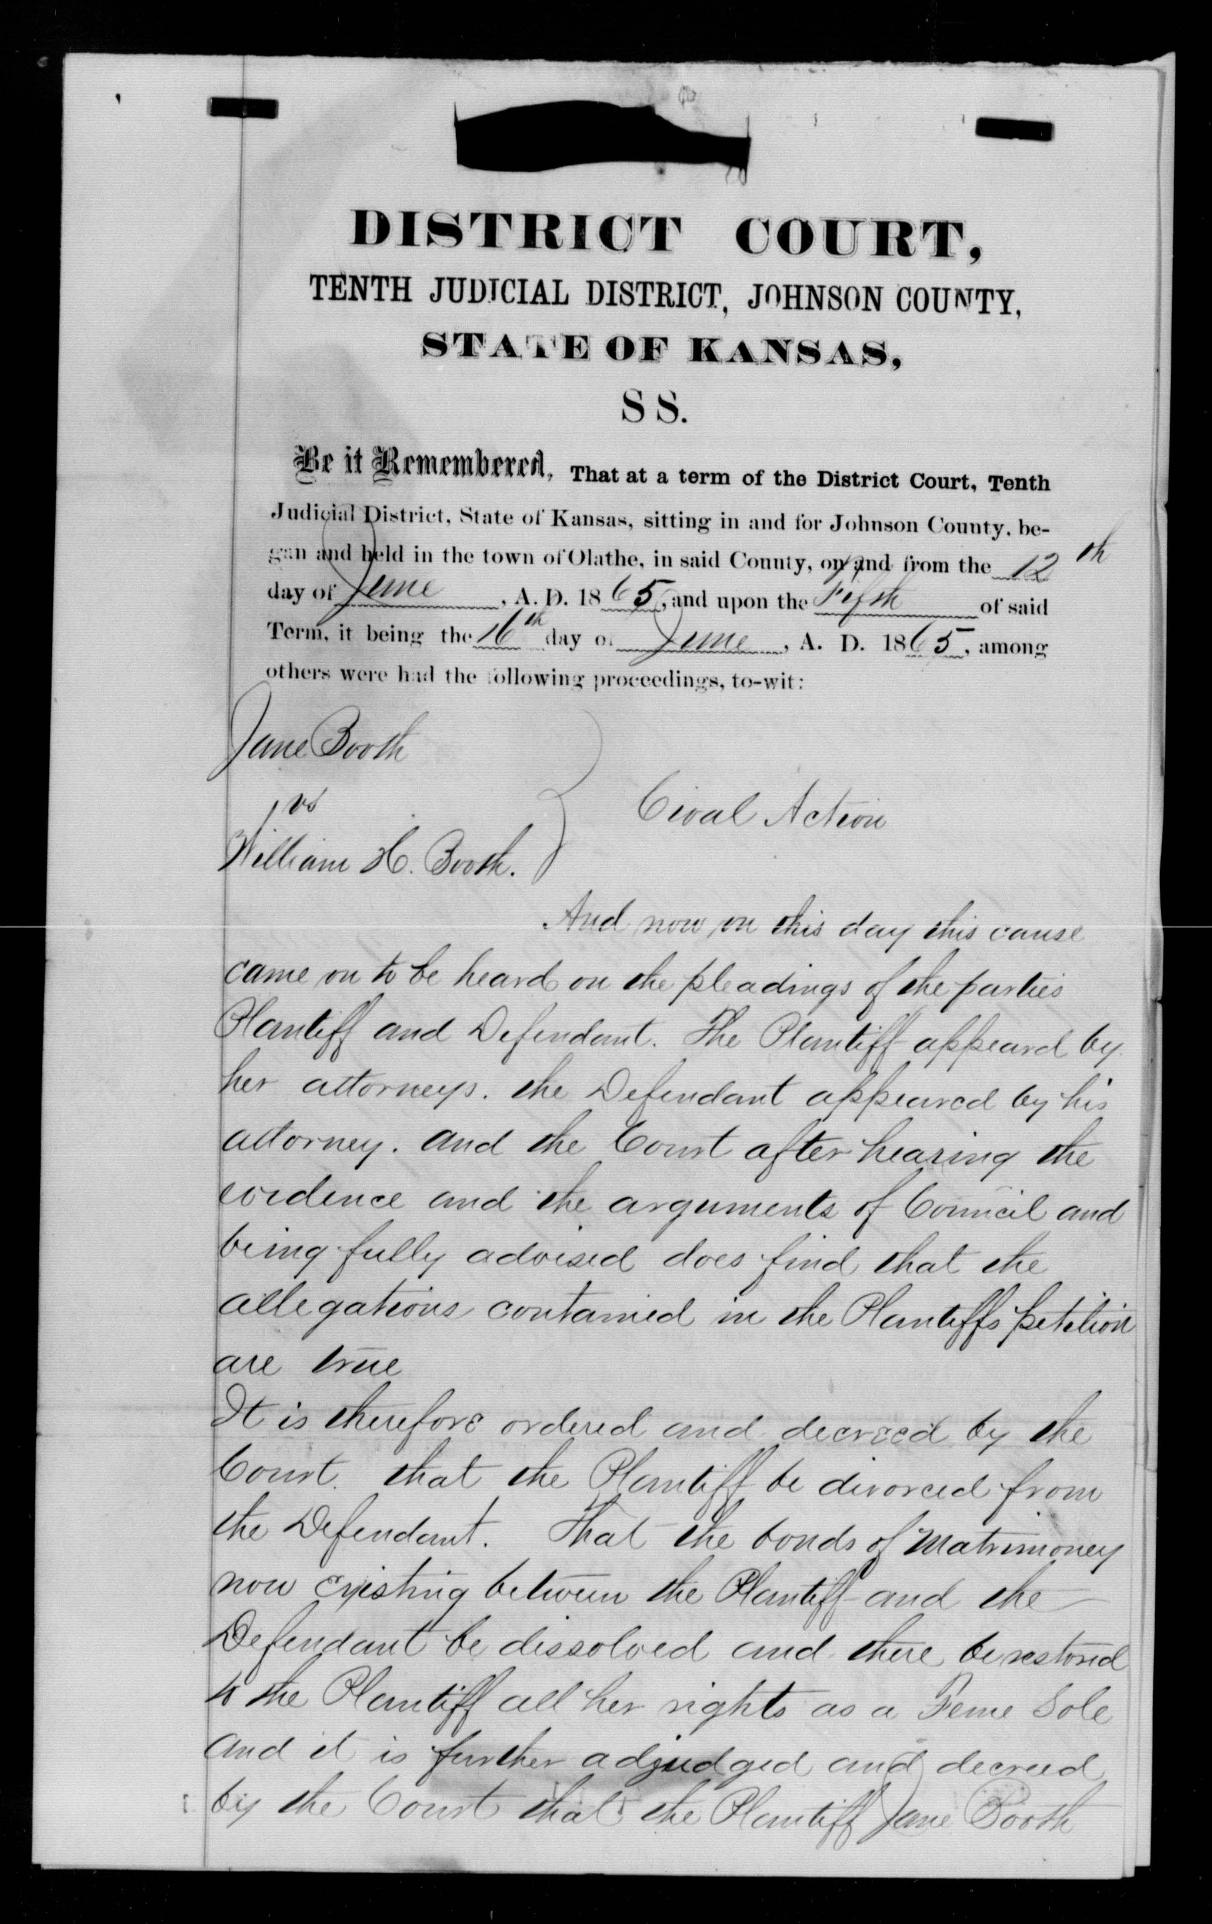 DISTRICT COURT,
TENTH JUDICIAL DISTRICT, JOHNSON COUNTY,
STATE OF KANSAS,
SS.
Be it Remembered, That at a term of the District Court, Tenth
Judicial District, State of Kansas, sitting in and for Johnson County, be-
gan and held in the town of Olathe, in said County, on and from the 12th
day of June, A. D. 1865, and upon the Fifth of said
Term, it being the 16th day of June, A. D. 1865, among
others were had the following proceedings, to-wit:
Jane Booth
vs
Cival Action
William H. Booth.
And now on this day this cause
came on to be heard on the pleadings of the parties
Plantiff and Defendant. The Plantiff appeard by
her attorneys. the Defendant appeared by his
attorney. and the Court after hearing the
evidence and the arguments of Council and
being fully advised does find that the
allegations contained in the Plantiffs petition
are true
It is therefore ordered and decreed by the
Court. that the Plantiff be divorced from
the Defendant. That the bonds of Matrimoney
now existing between the Plantiff and the
Defendant be dissolved and there be restored
to the Plantiff all her rights as a Feme Sole
and it is further adjudged and decreed
by the Court that the Plantiff Jane Booth